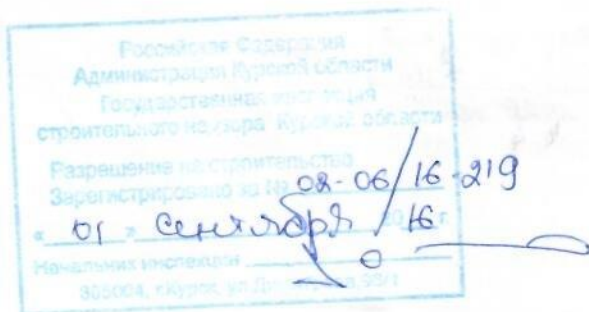 Российская Федерация
Администрация Курской области
Государственная инспекция
строительного надзора Курской области
Разрешение на строительство
Зарегистрировано за № 02-06/16-219
« 01 » сентября 2016 г.
Начальник инспекции
305004, г.Курск, ул.